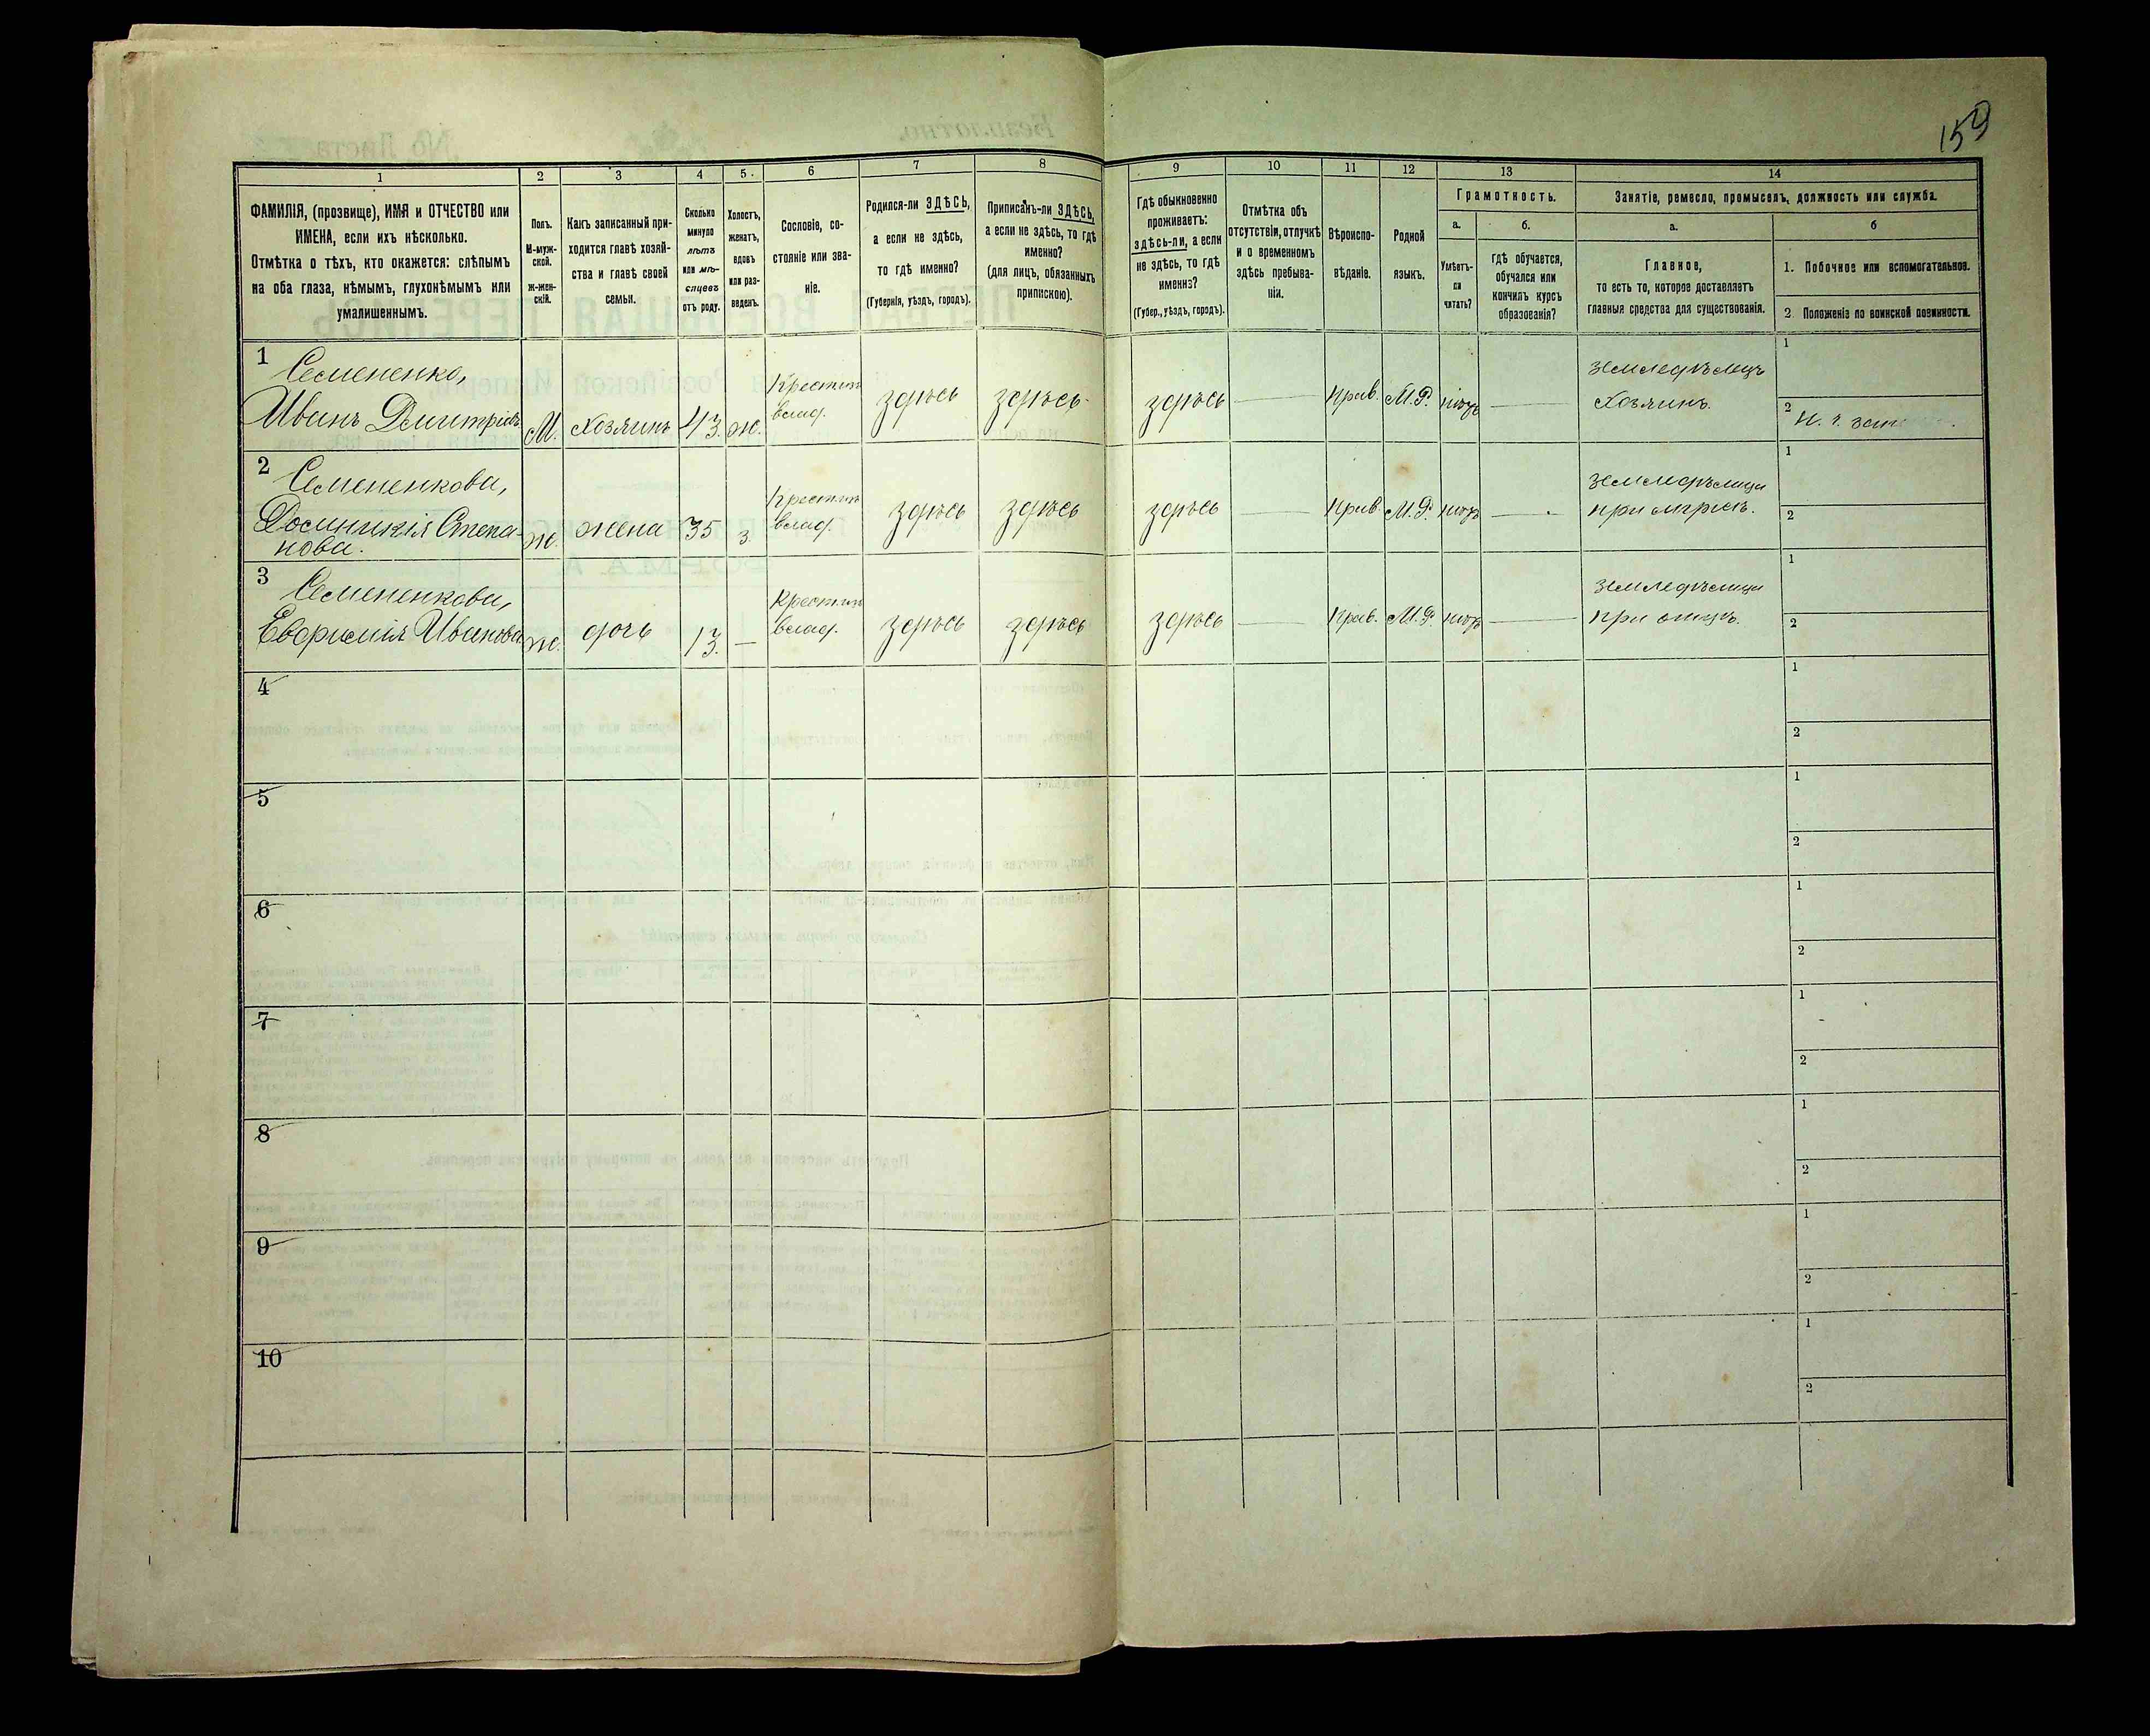 159
1
2
3
4
5
6
7
8
9
10
11
12
13
14
ФАМИЛІЯ, (прозвище), ИМЯ и ОТЧЕСТВО или
ИМЕНА, если ихъ нѣсколько.
Отмѣтка о тѣхъ, кто окажется: слѣпымъ
на оба глаза, нѣмымъ, глухонѣмымъ или
умалишеннымъ.
Полъ.
М-муж-
ской.
ж-жен-
скій.
Какъ записанный при-
ходится главѣ хозяй-
ства и главѣ своей
семьи.
Сколько
минуло
лѣтъ
или мѣ-
сяцевъ
отъ роду.
Холостъ,
женатъ,
вдовъ
или раз-
веденъ.
Сословіе, со-
стояніе или зва-
ніе.
Родился-ли ЗДѢСЬ,
а если не здѣсь,
то гдѣ именно?
(Губернія, уѣздъ, городъ).
Приписанъ-ли ЗДѢСЬ,
а если не здѣсь, то гдѣ
именно?
(для лицъ, обязанныхъ
припискою).
Гдѣ обыкновенно
проживаетъ:
здѣсь-ли, а если
не здѣсь, то гдѣ
именно?
(Губер., уѣздъ, городъ).
Отмѣтка объ
отсутствіи, отлучкѣ
и о временномъ
здѣсь пребыва-
ніи.
Вѣроиспо-
вѣданіе.
Родной
языкъ.
Грамотность.
а.
Умѣетъ-
ли
читать?
б.
гдѣ обучается,
обучался или
кончилъ курсъ
образованія?
Занятіе, ремесло, промыселъ, должность или служба.
а.
Главное,
то есть то, которое доставляетъ
главныя средства для существованія.
б
1. Побочное или вспомогательное.
2. Положеніе по воинской повинности.
1
Семененко,
Иванъ Дмитріевъ
М.
Хозяинъ
43.
ж.
Крестьян
влад.
здѣсь
здѣсь
здѣсь
Прав.
М.Р.
нѣтъ
земледѣлецъ
Хозяинъ.
1
2
2
Семененкова,
Степа-
нова.
Ж.
жена
35
з.
Крестьян
влад.
здѣсь
здѣсь
здѣсь
Прав.
М.Р.
нѣтъ
земледѣлица
при мужѣ.
1
2
3
Семененкова,
Евфимія Иванова
Ж.
дочь
13.
Крестьян
влад.
здѣсь
здѣсь
здѣсь
Прав.
М.Р.
нѣтъ
земледѣлица
при отцѣ.
1
2
4
1
2
5
1
2
6
1
2
7
1
2
8
1
2
9
1
2
10
1
2